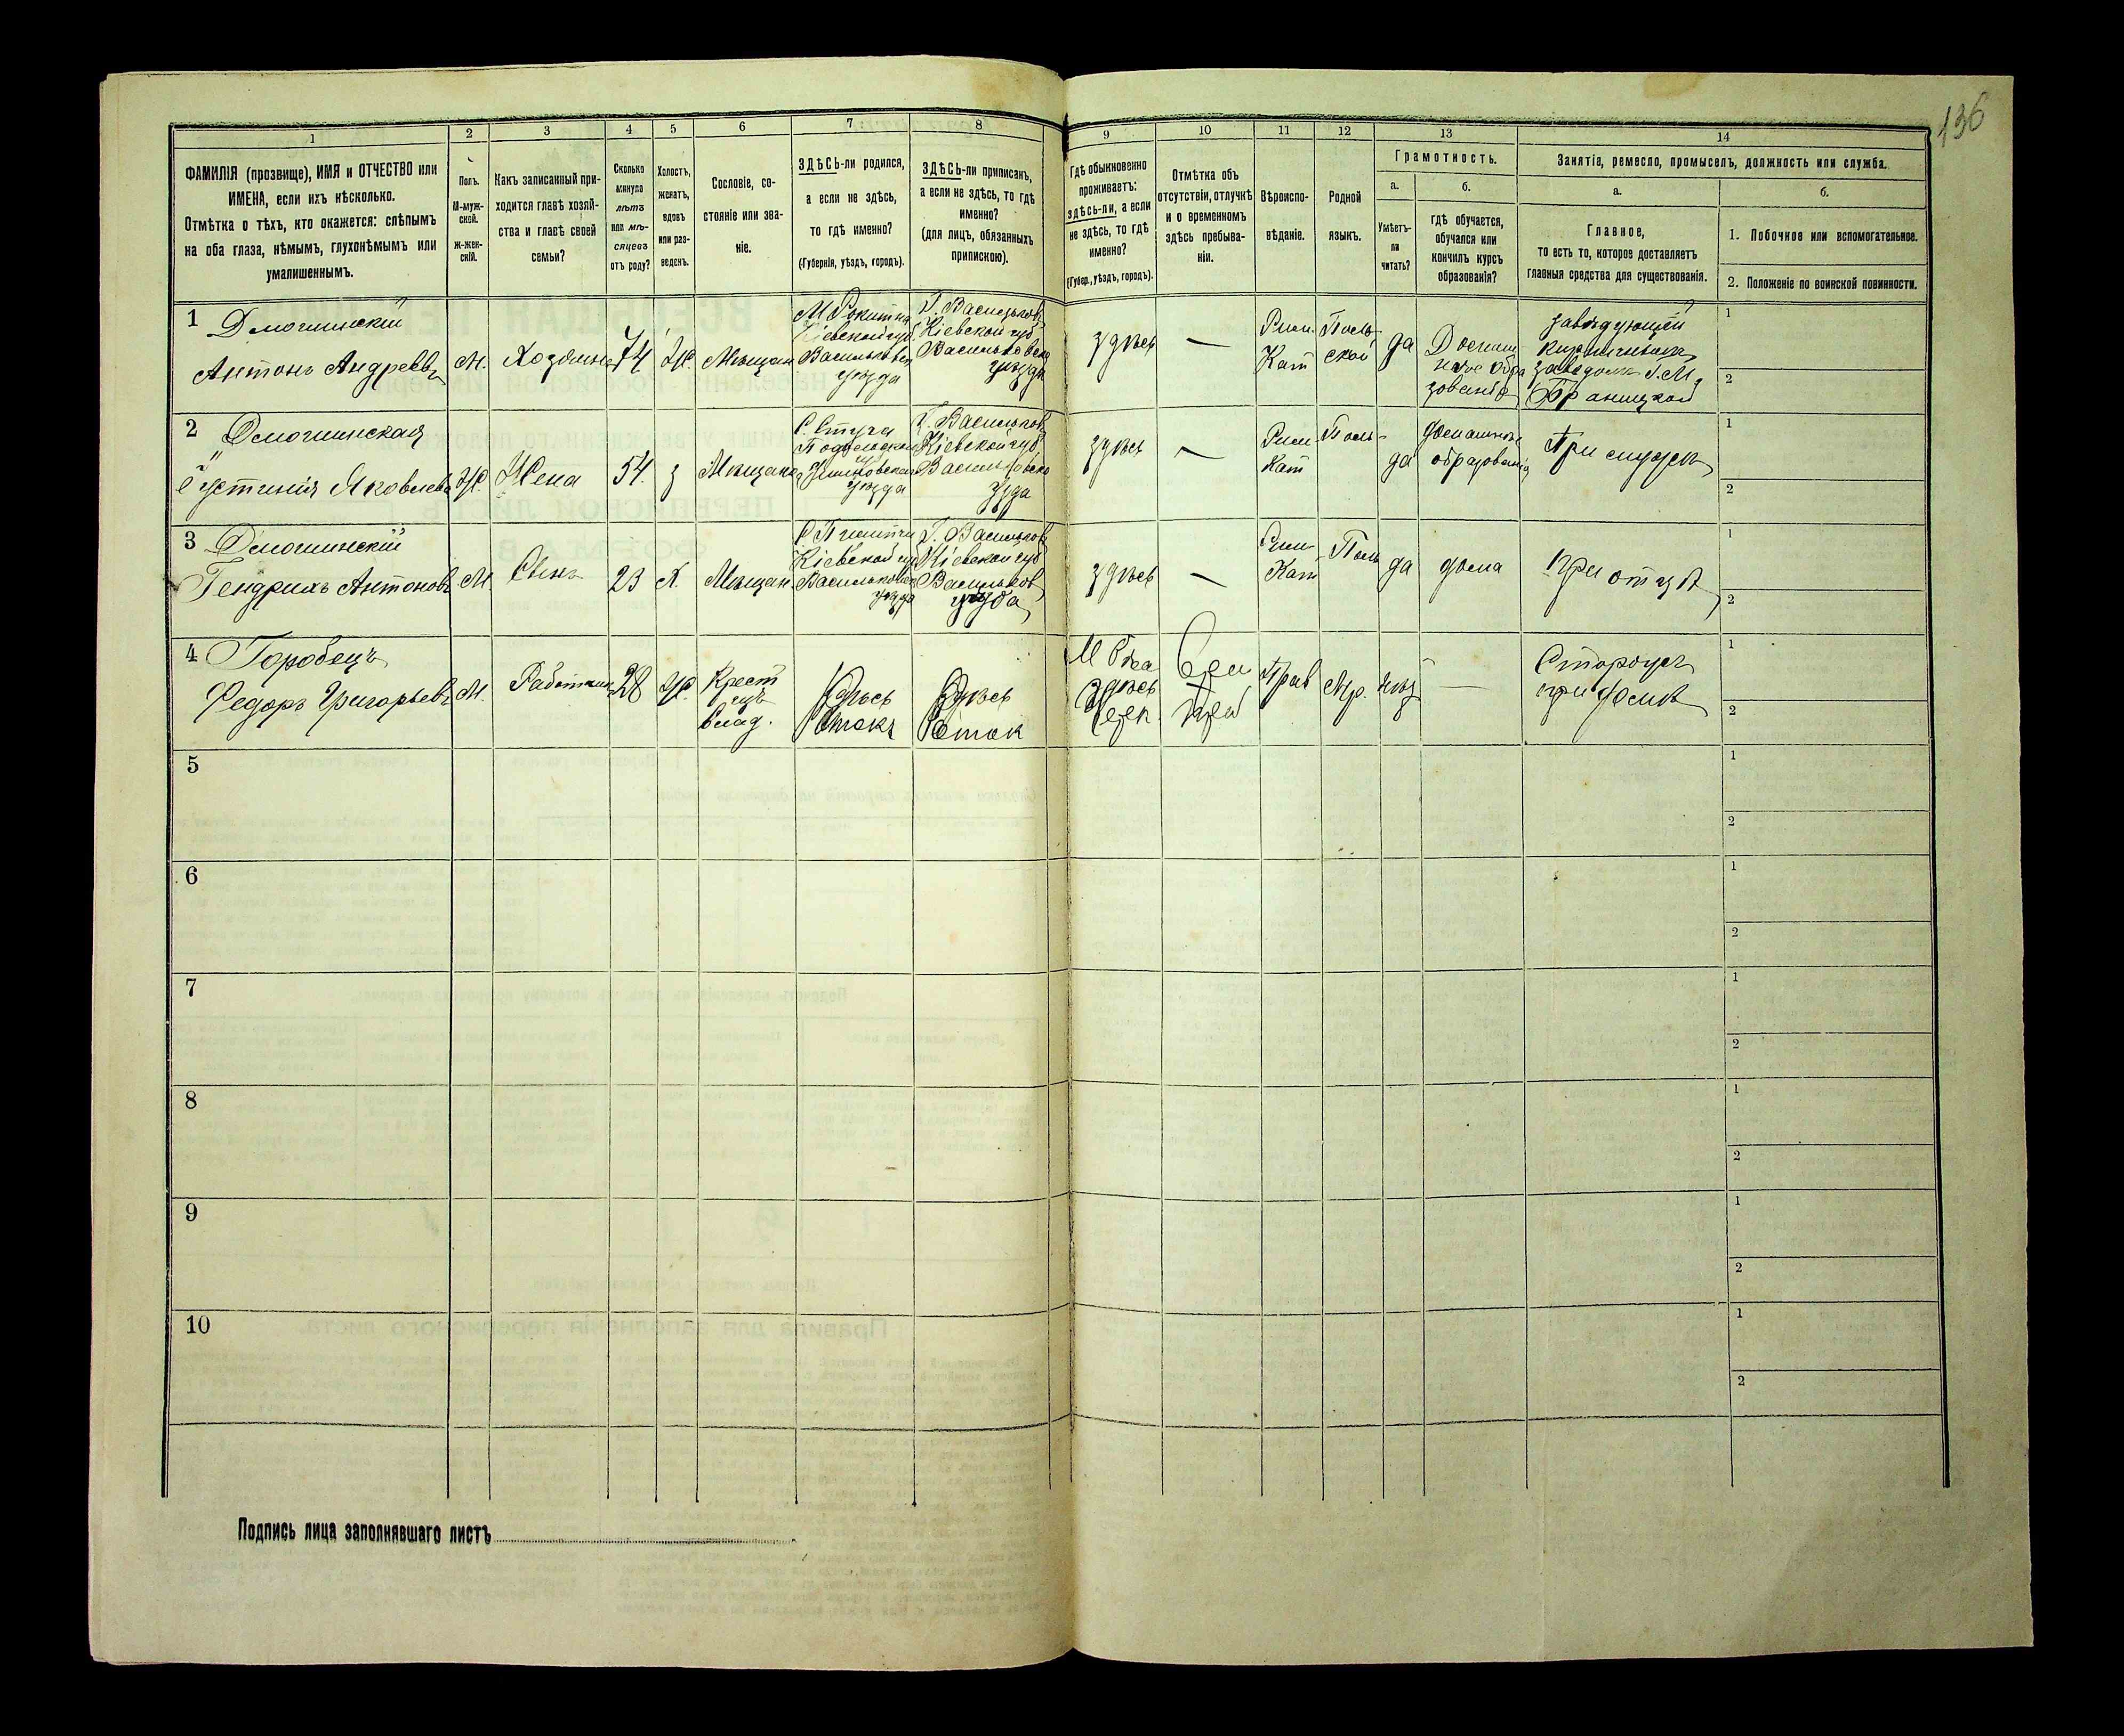 136
1
2
3
4
5
6
7
8
9
10
11
12
13
14
ФАМИЛІЯ (прозвище), ИМЯ и ОТЧЕСТВО или
ИМЕНА, если ихъ нѣсколько.
Отмѣтка о тѣхъ, кто окажется: слѣпымъ
на оба глаза, нѣмымъ, глухонѣмымъ или
умалишеннымъ.
Полъ.
М-муж-
ской.
ж-жен-
скій.
Какъ записанный при-
ходится главѣ хозяй-
ства и главѣ своей
семьи?
Сколько
минуло
лѣтъ
или мѣ-
сяцевъ
отъ роду?
Холостъ,
женатъ,
вдовъ
или раз-
веденъ.
Сословіе, со-
стояніе или зва-
ніе.
ЗДѢСЬ-ли родился,
а если не здѣсь,
то гдѣ именно?
(Губернія, уѣздъ, городъ).
ЗДѢСЬ-ли приписанъ,
а если не здѣсь, то гдѣ
именно?
(для лицъ, обязанныхъ
припискою).
Гдѣ обыкновенно
проживаетъ:
здѣсь-ли, а если
не здѣсь, то гдѣ
именно?
(Губер., уѣздъ, городъ).
Отмѣтка объ
отсутствіи, отлучкѣ
и о временномъ
здѣсь пребыва-
ніи.
Вѣроиспо-
вѣданіе.
Родной
языкъ.
Грамотность.
а.
Умѣетъ-
ли
читать?
б.
гдѣ обучается,
обучался или
кончилъ курсъ
образованія?
Занятіе, ремесло, промыселъ, должность или служба.
а.
Главное,
то есть то, которое доставляетъ
главныя средства для существованія.
б.
1. Побочное или вспомогательное.
2. Положеніе по воинской повинности.
1
Антонъ Андреевъ
М.
Хозяинъ
74
Ж.
Мѣщан.
М Рокитна
Кіевской губ.
Васильковск
уѣзда
Г. Васильковъ
Кіевской губ
Васильковска
уѣзда
здѣсь
—
Рим.
Кат
Поль
ской
да
Домаш
нее обра
зованіе
завѣдующій
кирпичнымъ
заводомъ Г. М.
Браницкой
1
2
2
Яковлева
Ж.
Жена
54.
з
Мѣщанка
Подольской
уѣзда
Г. Васильковъ
Кіевской губ
Васильковско
здѣсь
—
Рим
Кат
Поль-
да
домашнее
образованіе
При мужѣ
1
2
3
Гендрихъ Антоновъ
М.
Сынъ
23
Х.
Мѣщан
Кіевской губ
Васильковск
уѣзда
Г. Васильковъ
Кіевской губ
Васильков
здѣсь
—
Рим
Кат
Поль
да
дома
при отцѣ
1
2
4
Горобецъ
Федоръ Григорьевъ
М.
Работникъ
28
Ж.
Крест
влад.
Здѣсь
Здѣсь
здѣсь
Прав
Мр.
нѣт
—
Сторожъ
при домѣ
1
2
5
1
2
6
1
2
7
1
2
8
1
2
9
1
2
10
1
2
Подпись лица заполнявшаго листъ